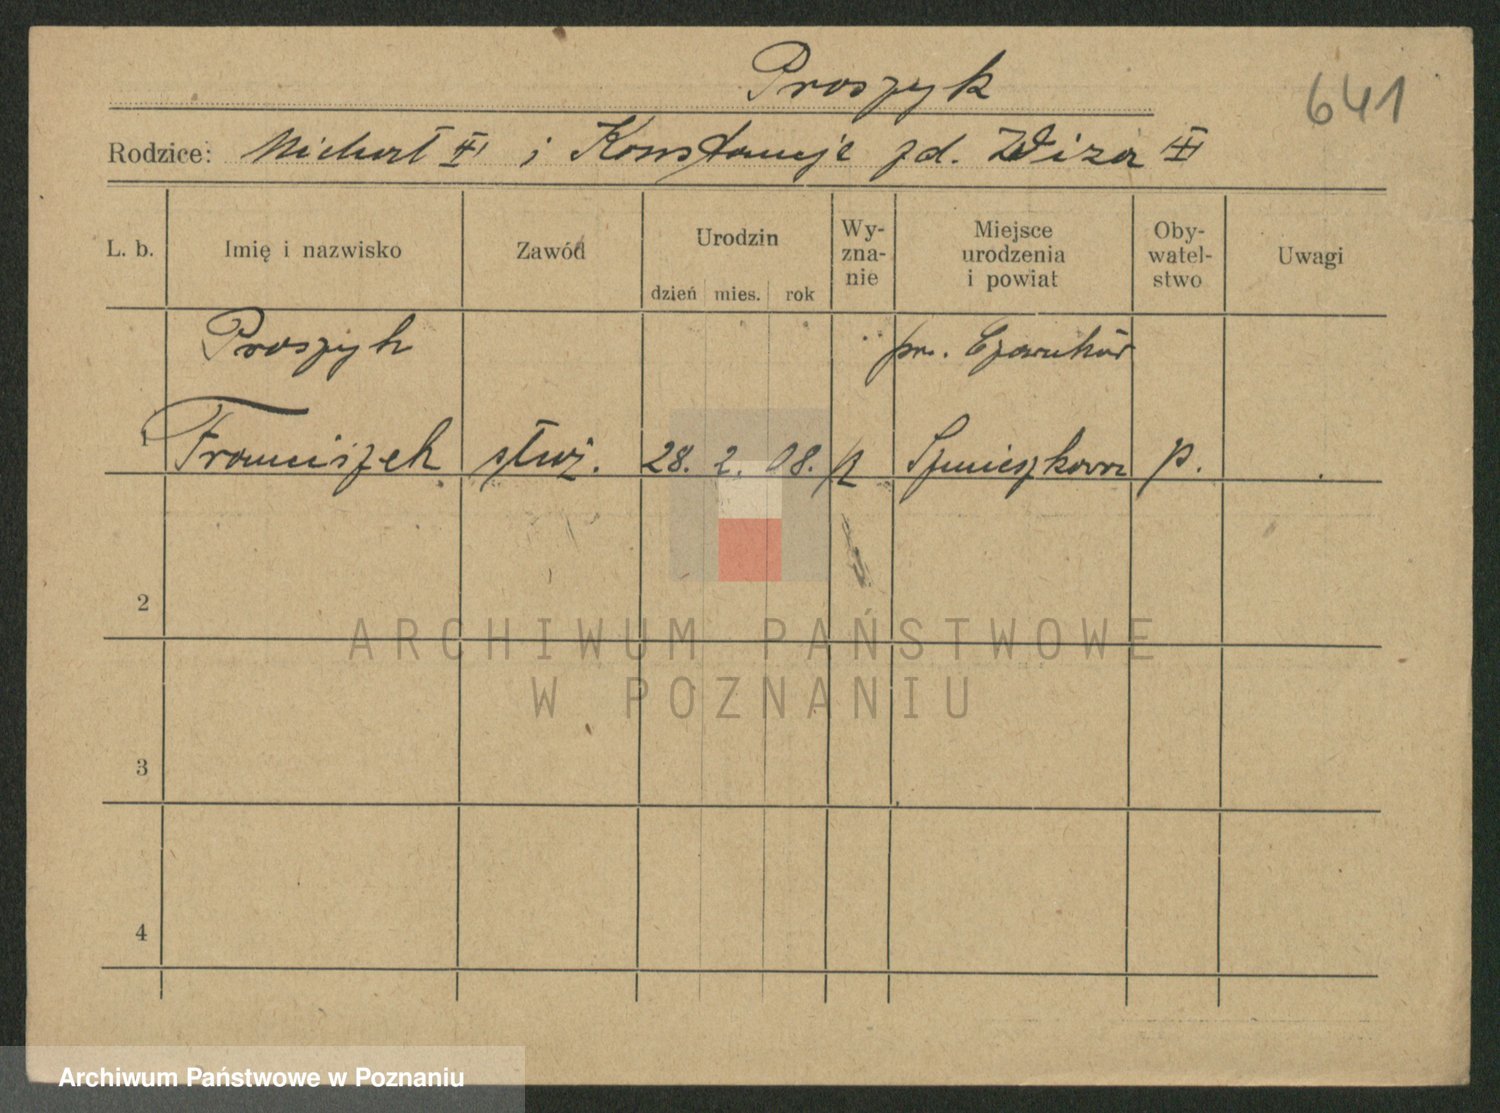 Proszyk
641
Rodzice: Michał i Konstancje zd. Wiza
L. b. Imię i nazwisko Zawód Urodzin dzień mies. rok Wy-zna-nie Miejsce urodzenia i powiat Oby-watel-stwo Uwagi
Proszyk pow. Czarnków
1 Franciszek służ. 28. 2. 08. Śmieszkowo p.
2
ARCHIWUM PAŃSTWOWE
W POZNANIU
3
4
Archiwum Państwowe w Poznaniu